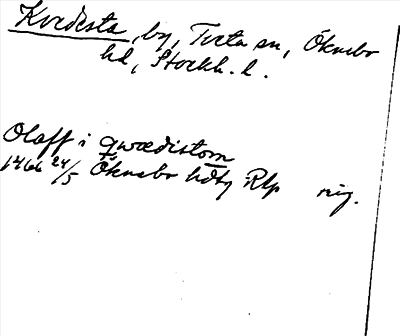 Kvedesta, by, Tveta sn, Öknebo
hd, Stockh. l.
Olaff i qwædistom
1466 24/5 Öknebo hdtg Rtp orig.